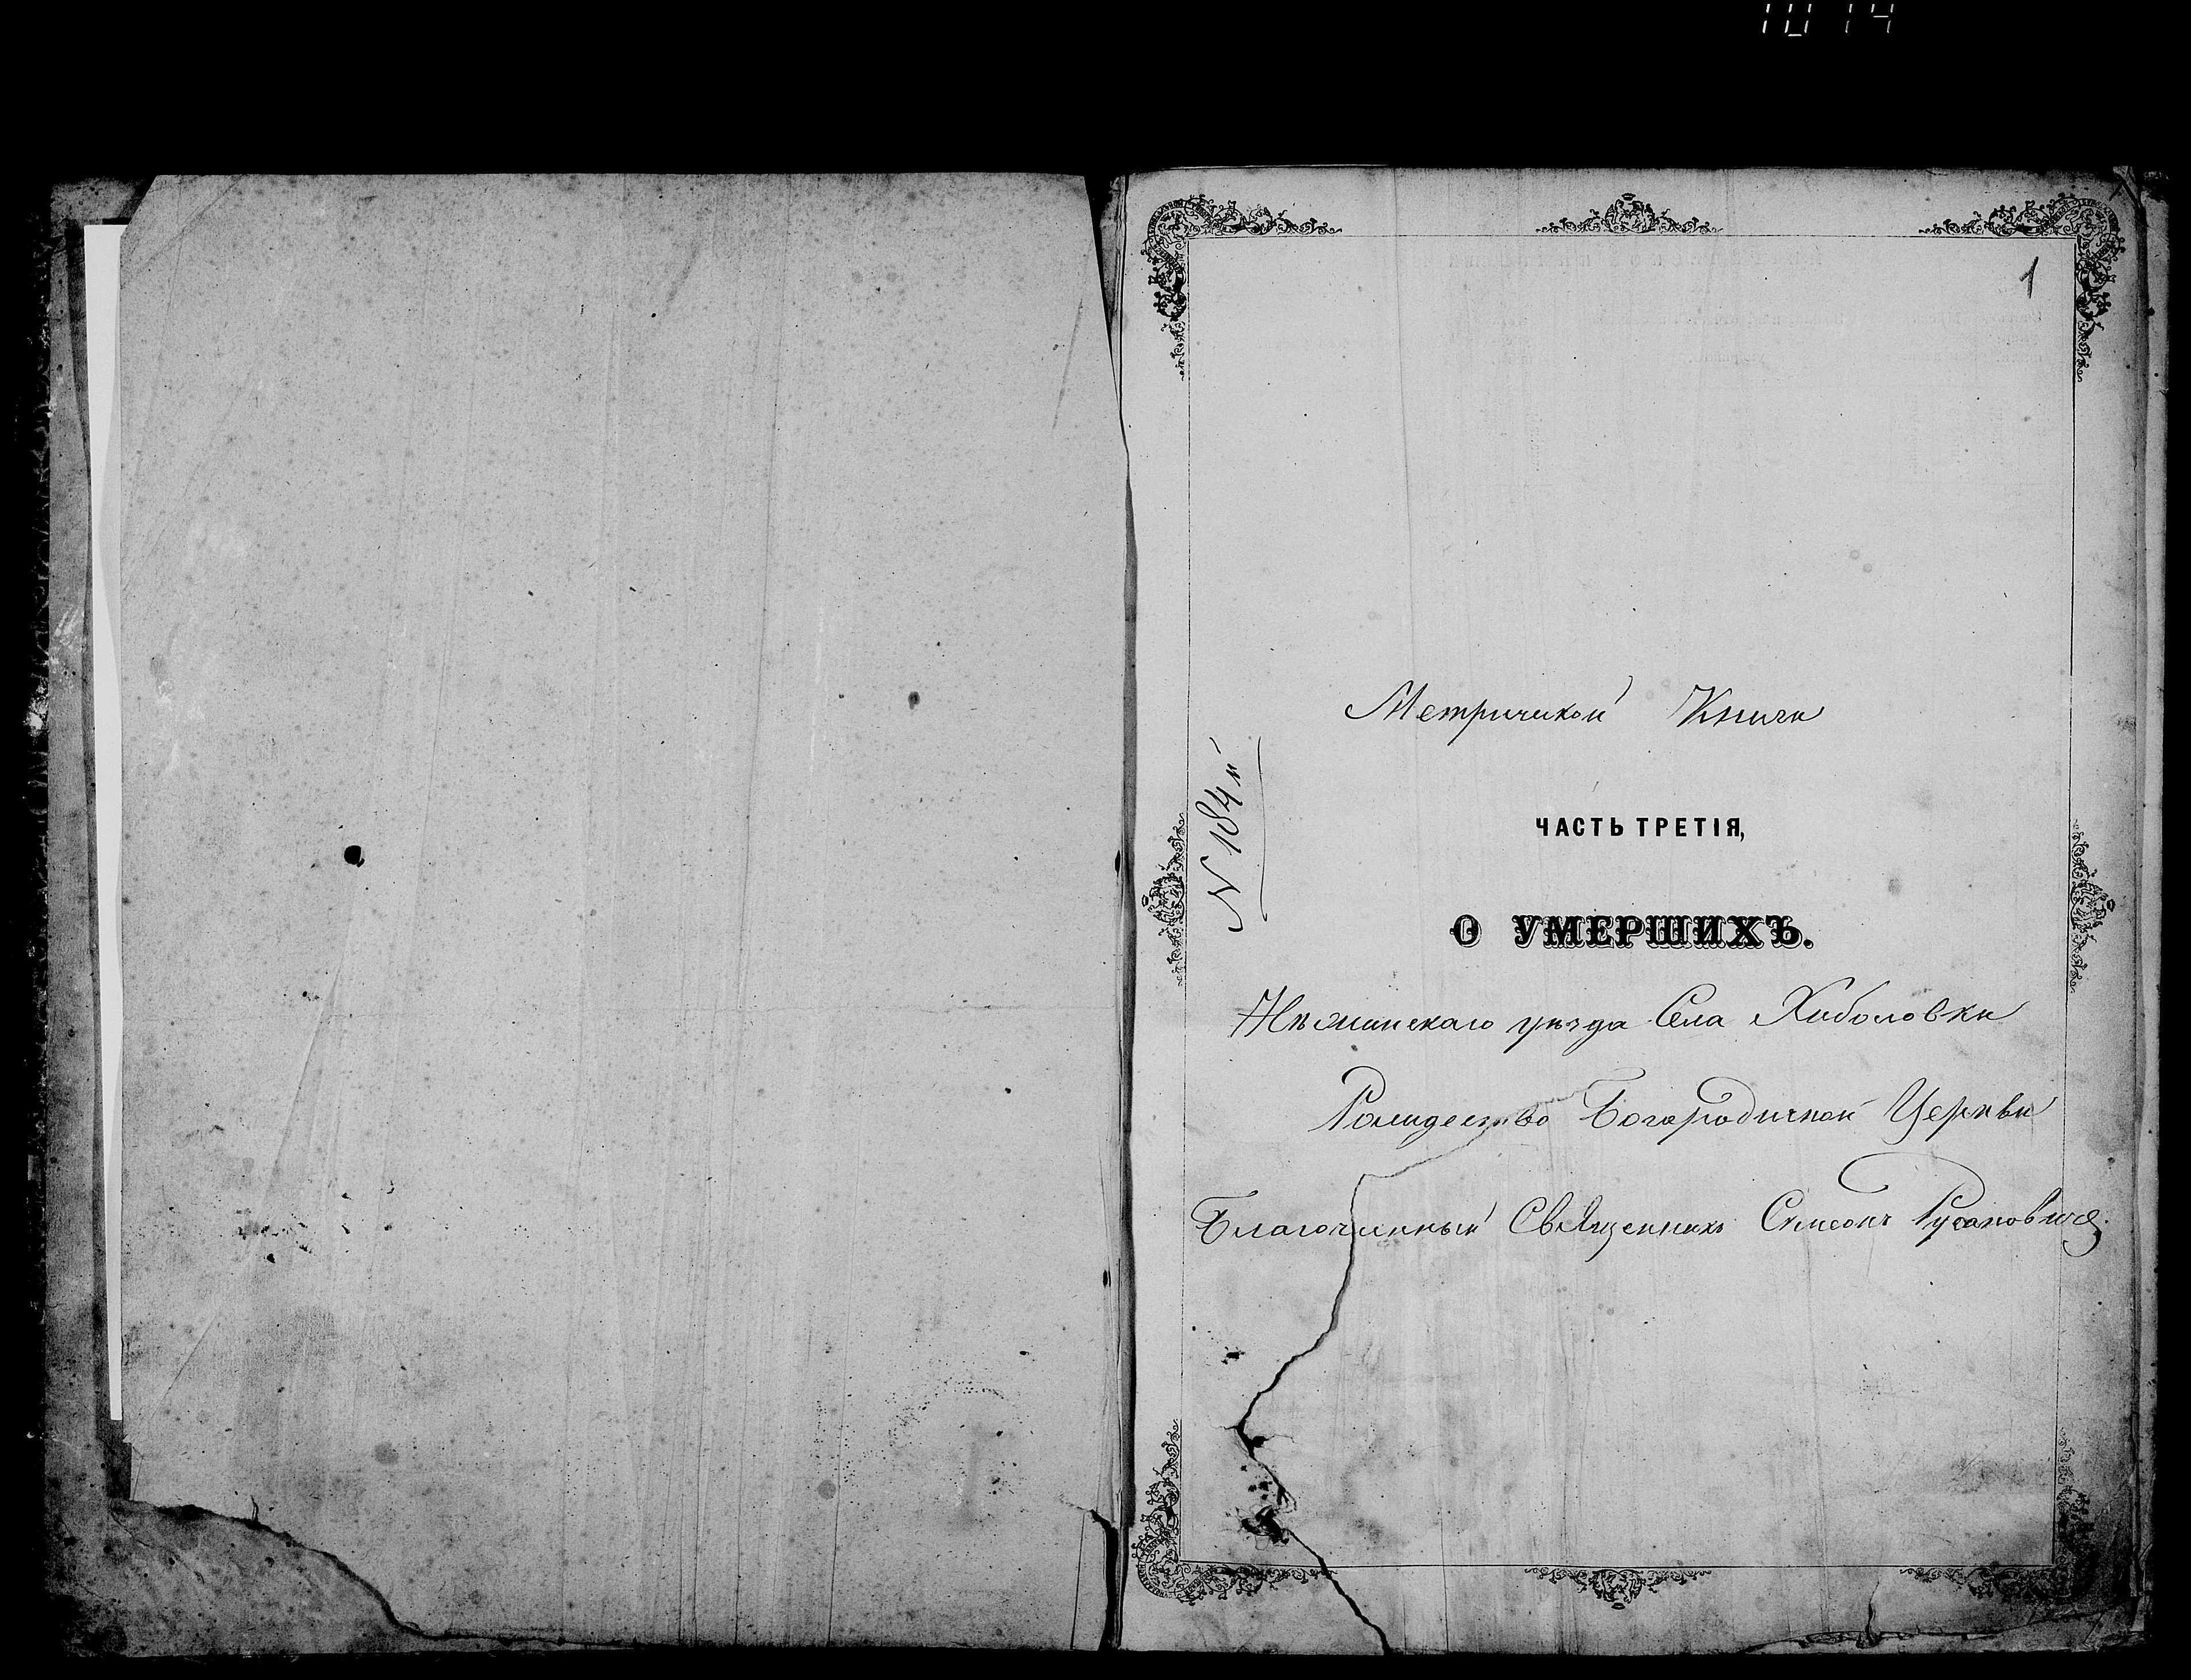 1014
1
Метрической Книги
N 184й
ЧАСТЬ ТРЕТІЯ,
О УМЕРШИХЪ.
Нѣжинскаго уѣзда Села Хибаловки
Рождество Богородичной Церкви
Благочинный Священникъ Симеонъ